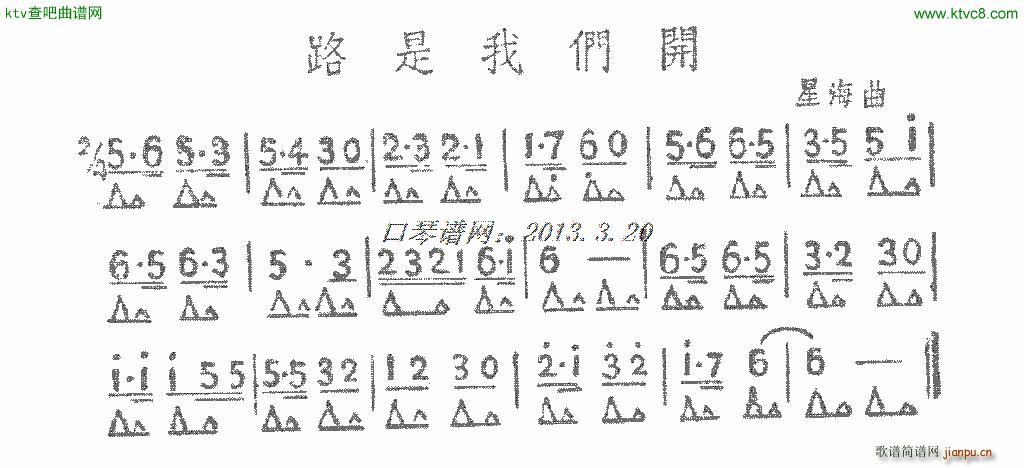 ktv查吧曲谱网
www.ktvc8.com
路是我們開
星海曲
2/4 5·6 5·3 | 5·4 30 | 2·3 2·1 | 1·7 60 | 5·6 6·5 | 3·5 5 i |
口琴谱网：2013.3.20
6·5 6·3 | 5 · 3 | 2321 6·i | 6 — | 6·5 6·5 | 3·2 30 |
i·i i 55 | 5·5 32 | 12 30 | 2·i 32 | i·7 6 | 6 — ||
歌谱简谱网
jianpu.cn